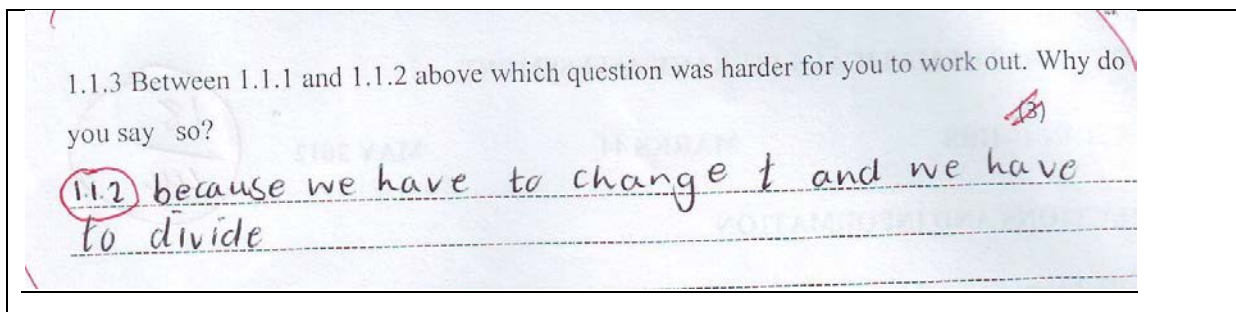 1.1.3 Between 1.1.1 and 1.1.2 above which question was harder for you to work out. Why do
you say so?
(3)
1.1.2 because we have to change t and we have
to divide